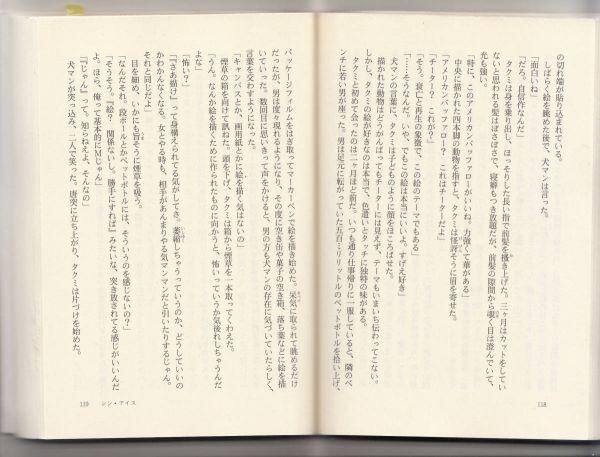 の切れ端が貼り込まれている。
しばらく絵を眺めた後で、犬マンは言った。
「面白いね」
「だろ。自信作なんだ」
タクミは身を乗り出し、ほっそりした長い指で前髪を掻き上げた。三ヶ月はカットをしてい
ないと思われる髪はぼさぼさで、寝癖もつき放題だが、前髪の隙間から覗く目は澄んでいて、
光も強い。
「特に、このアメリカンバッファローがいいね。力強くて華がある」
中央に描かれた四本脚の動物を指すと、タクミは怪訝そうに眉を寄せた。
「アメリカンバッファロー？ これはチーターだよ」
「チーター？ これが？」
「そう。衰亡と再生の象徴で、この絵のテーマでもある」
「……そうなんだ。いや、でもこの絵は本当にいいよ。すげえ好き」
犬マンの言葉に、タクミは子どものように顔をほころばせた。
描かれた動物はどうがんばってもチーターには見えず、テーマもいまいち伝わってこない。
しかし、タクミの絵が好きなのは本当で、色遣いとタッチに独特の味がある。
タクミと初めて会ったのは二ヶ月ほど前だ。いつも通り仕事帰りに一服していると、隣のベ
ンチに若い男が座った。男は足元に転がっていた五百ミリリットルのペットボトルを拾い上げ、
118
パッケージフィルムをはぎ取ってマーカーペンで絵を描き始めた。呆気に取られて眺めるだけ
だったが、男は度々現れるようになり、その度に空き缶や菓子の空き箱、落ち葉などに絵を描
いていった。数回目に思いきって声をかけると、男の方も犬マンの存在に気づいていたらしく、
言葉を交わすようになった。
「キャンバスとか、画用紙とかに絵を描く気はないの」
煙草の箱を向けて訊ねた。頭を下げ、タクミは箱から煙草を一本取ってくわえた。
「うん。なんか絵を描くために作られたものに向かうと、怖いっていうか気後れしちゃうんだ
よな」
「怖い？」
「『さあ描け』って身構えられてる気がしてさ。萎縮しちゃうっていうのか、どうしていいの
かわかんなくなる。女とやる時も、相手があんまりやる気マンマンだと引いたりするじゃん。
それと同じだよ」
目を細め、いかにも旨そうに煙草を吸う。
「なんだそれ。段ボールとかペットボトルには、そういうのを感じないの？」
「そうそう。『絵？ 関係ないし。勝手にすれば』みたいな、突き放されてる感じがいいんだ
よ。ほら、俺って基本的にMじゃん」
「『じゃん』って。知らねえよ、そんなの」
犬マンが突っ込み、二人で笑った。唐突に立ち上がり、タクミは片づけを始めた。
119 シン・アイス